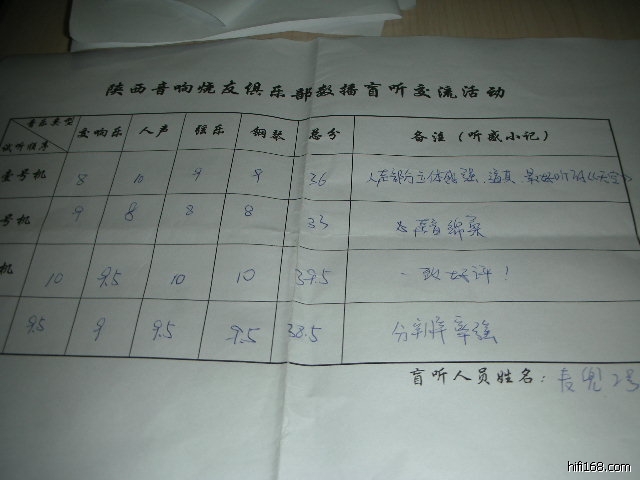 陕西音响烧友俱乐部数播盲听交流活动
音乐类型 交响乐 人声 弦乐 钢琴 总分 备注（听感小记）
试听顺序
壹号机 8 10 9 9 36 人声部分立体感强、逼真
号机 9 8 8 8 33 声音绵柔
机 10 9.5 10 10 39.5 一致好评！
9.5 9 9.5 9.5 38.5 分辨率强
盲听人员姓名：
hifi168.com